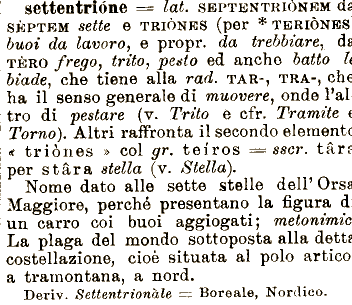 settentrióne = lat. SEPTENTRIÒNEM da
SÈPTEM sette e TRIÒNES (per * TERIÒNES
buoi da lavoro, e propr. da trebbiare, da
TÈRO frego, trito, pesto ed anche batto le
biade, che tiene alla rad. TAR-, TRA-, che
ha il senso generale di muovere, onde l'al-
tro di pestare (v. Trito e cfr. Tramite e
Torno). Altri raffronta il secondo elemento
« triònes » col gr. teíros = sscr. târâ
per stâra stella (v. Stella).
Nome dato alle sette stelle dell'Orsa
Maggiore, perché presentano la figura di
un carro coi buoi aggiogati; metonimic.
La plaga del mondo sottoposta alla detta
costellazione, cioè situata al polo artico,
a tramontana, a nord.
Deriv. Settentrionàle = Boreale, Nordico.